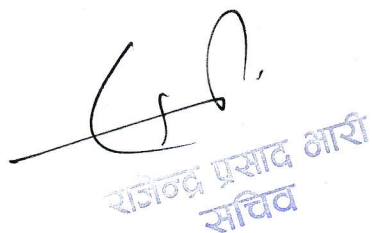 राजेन्द्र प्रसाद भारी
सचिव